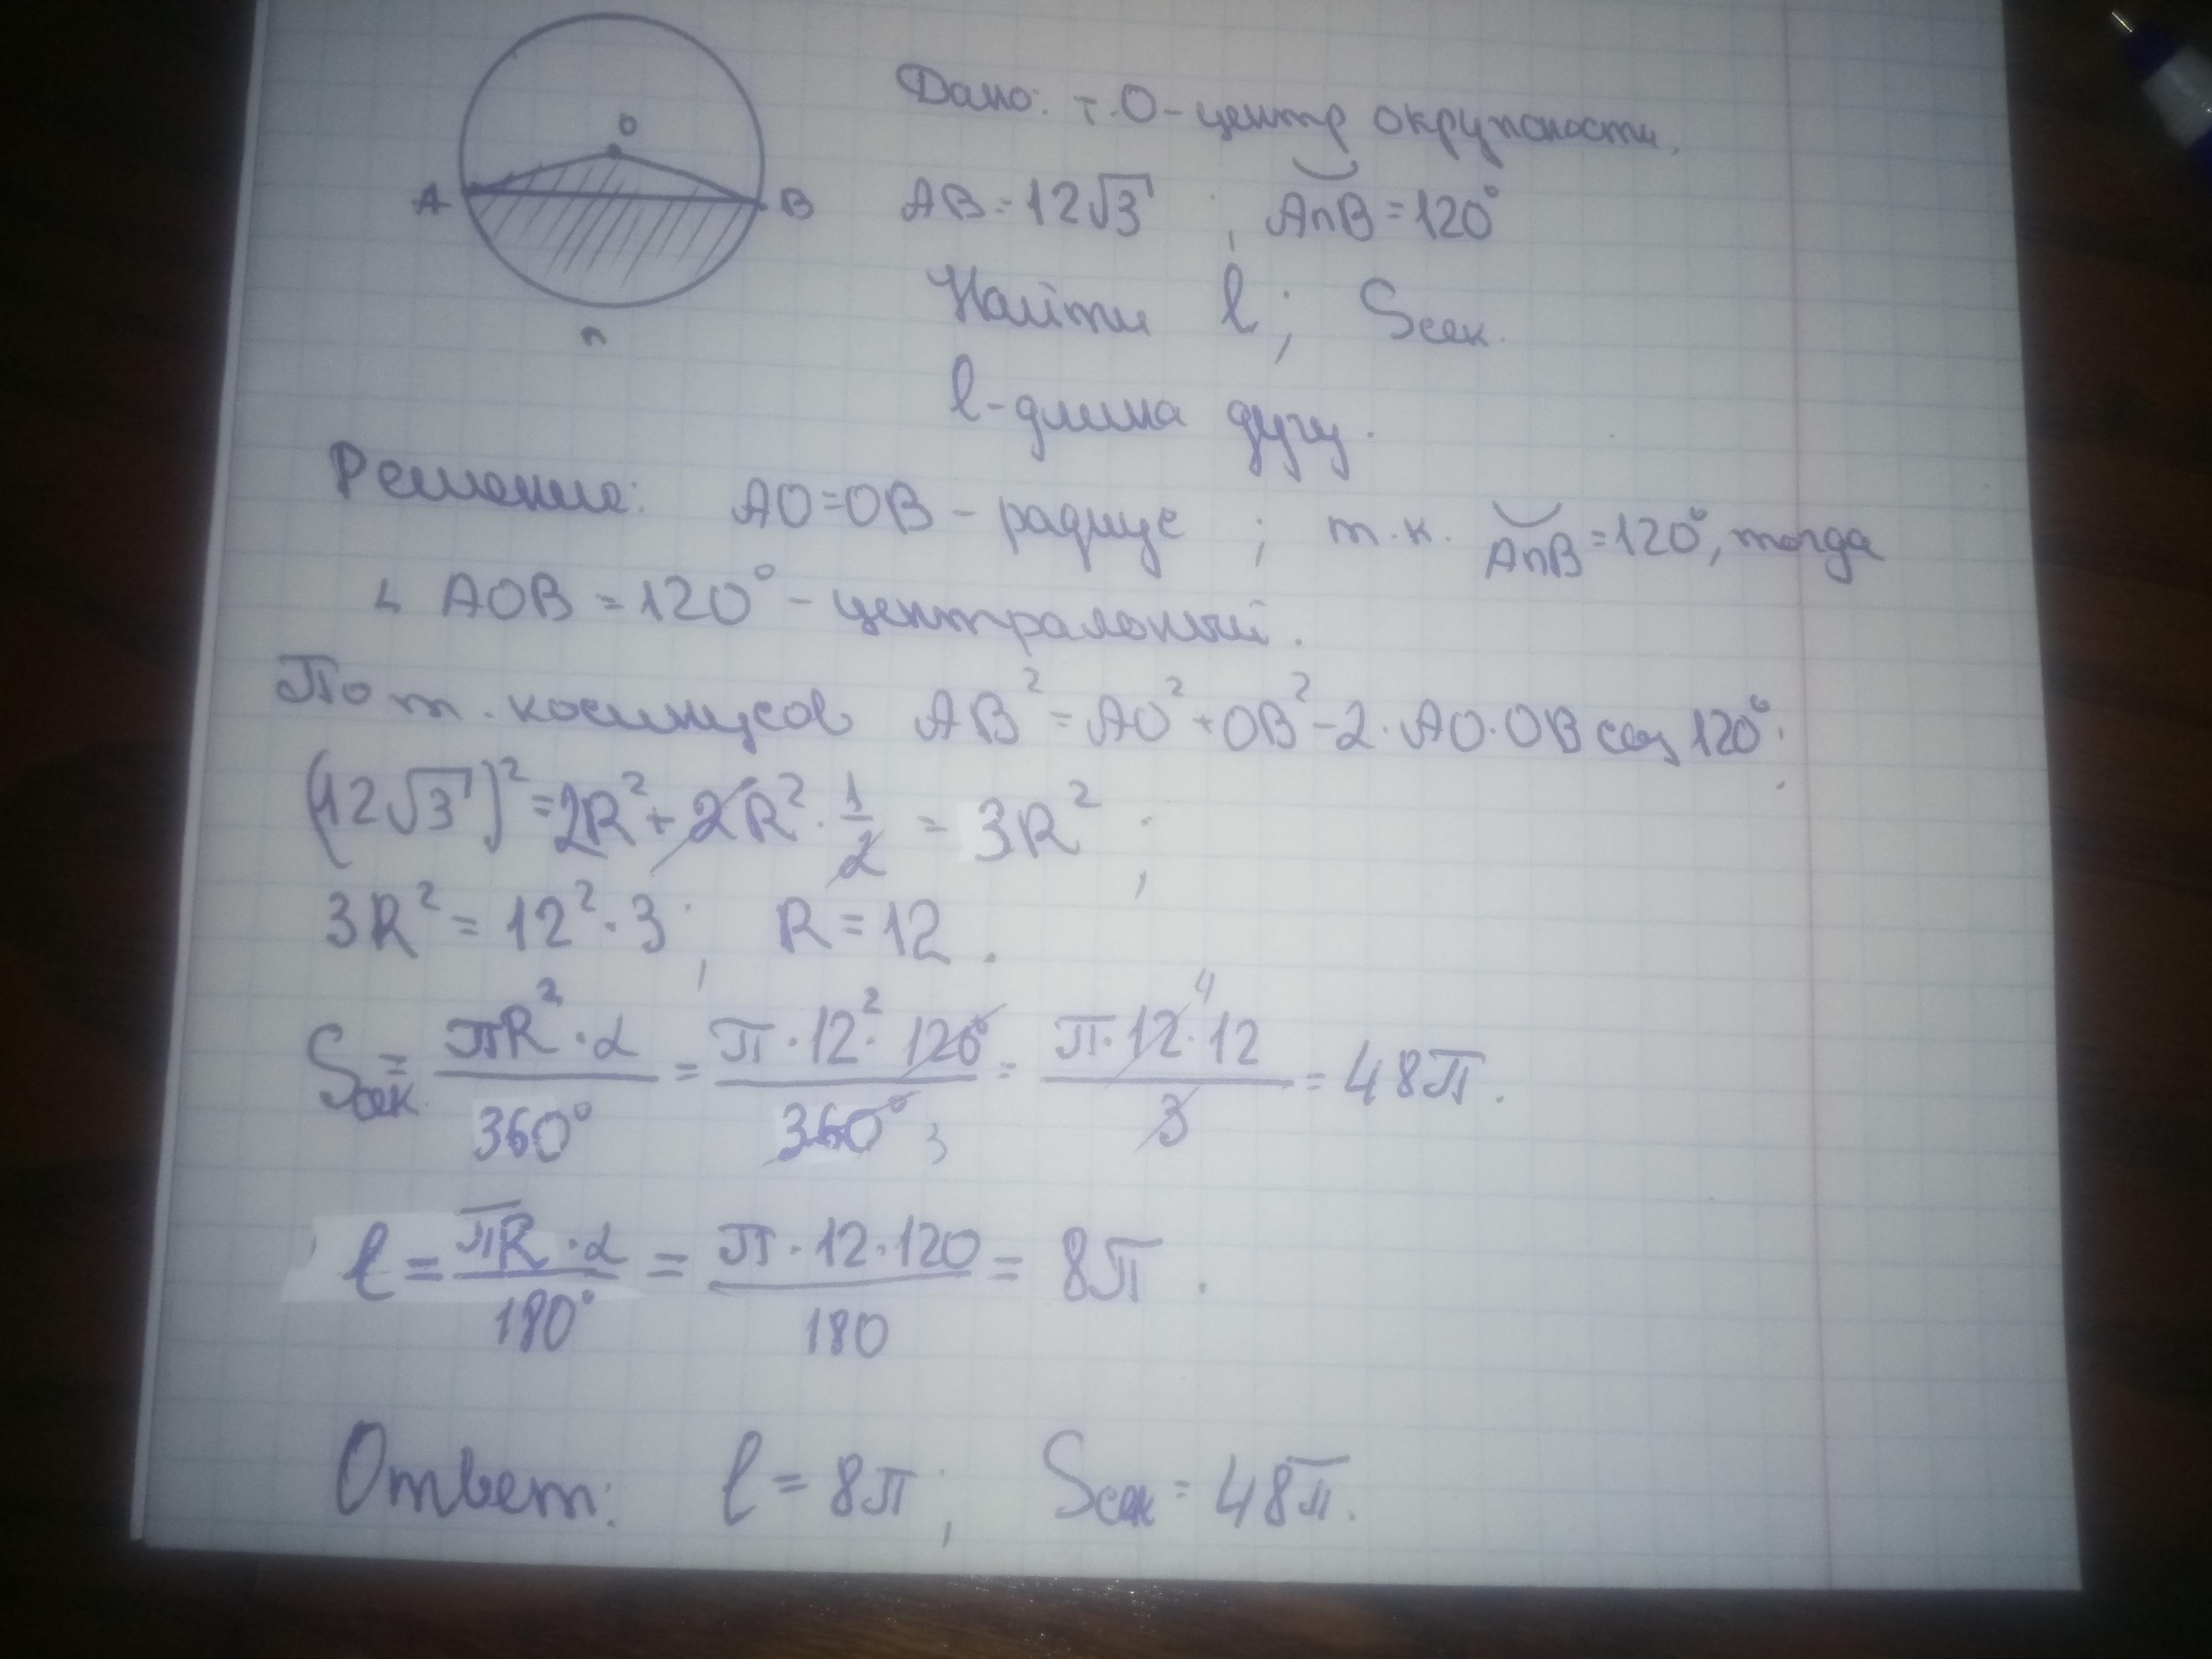 O
A
B
n
Дано: т. О - центр окружности,
AB = 12√3 ; ◡AnB = 120°
Найти l ; Sсек.
l - длина дугу.
Решение: AO = OB - радиус ; т.к. ◡AnB = 120°, тогда
∠ AOB = 120° - центральный.
По т. косинусов AB² = AO² + OB² - 2 · AO · OB cos 120° ;
(12√3)² = 2R² + 2R² · 1/2 = 3R² ;
3R² = 12² · 3 ; R = 12 .
Sсек. = πR² · α / 360° = π · 12² · 120° / 360° 3 = π · 12 4 · 12 / 3 = 48π .
l = πR · α / 180° = π · 12 · 120 / 180 = 8π .
Ответ: l = 8π ; Sсек = 48π.